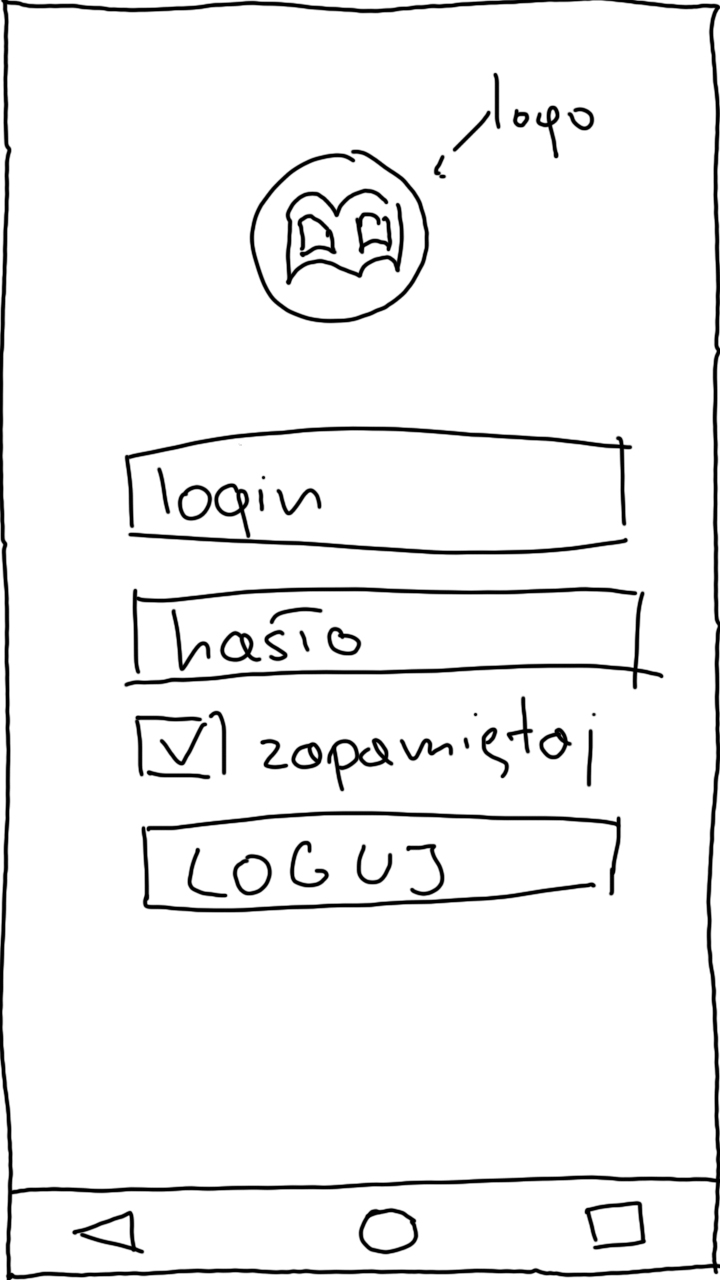 logo
login
hasło
zapamiętaj
LOGUJ